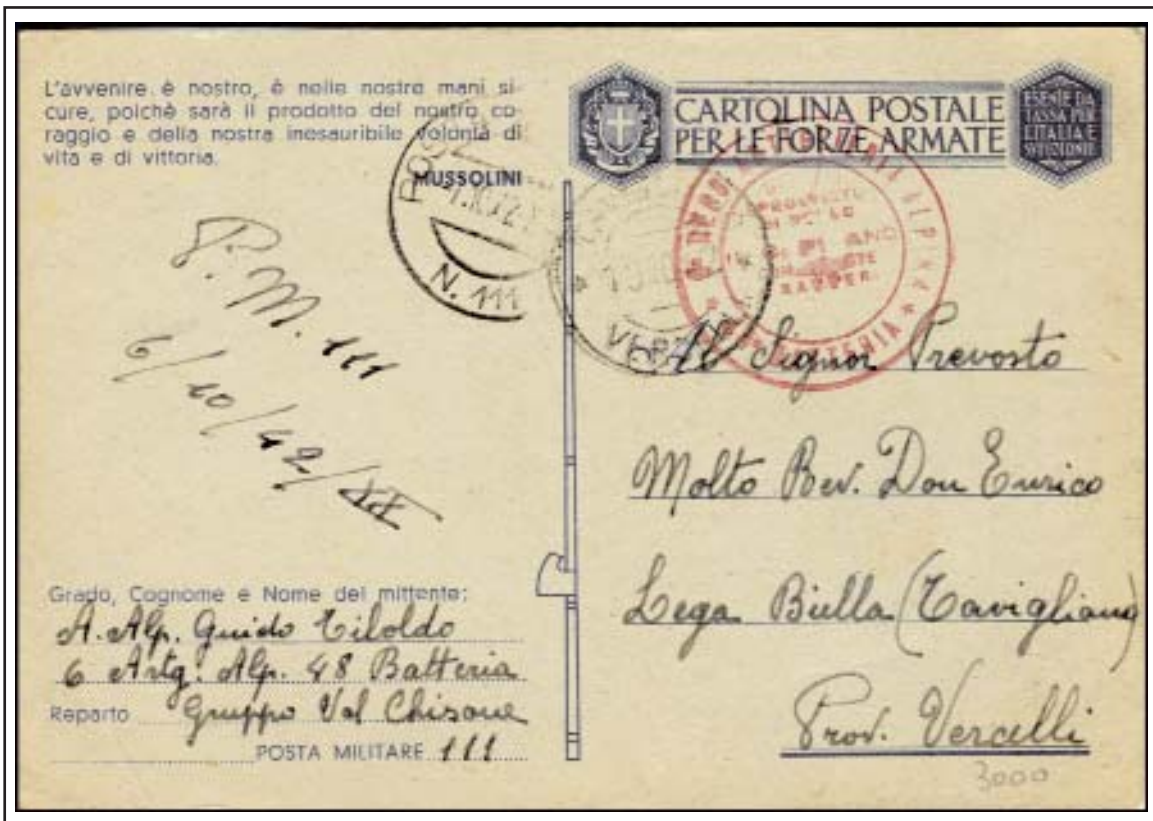 L'avvenire è nostro, è nelle nostre mani si-
cure, poichè sarà il prodotto del nostro co-
raggio e della nostra inesauribile volontà di
vita e di vittoria.
MUSSOLINI
CARTOLINA POSTALE
PER LE FORZE ARMATE
ESENTE DA
TASSA PER
L'ITALIA E
N. 111
ALPINA
P. M. 111
6/10/42/XX
Al Signor Prevosto
Molto Rev. Don Enrico
Lega Biella (Tavigliano)
Prov. Vercelli
3000
Grado, Cognome e Nome del mittente:
A. Alp. Guido Tiloldo
6 Artg. Alp. 48 Batteria
Reparto Gruppo Val Chisone
POSTA MILITARE 111